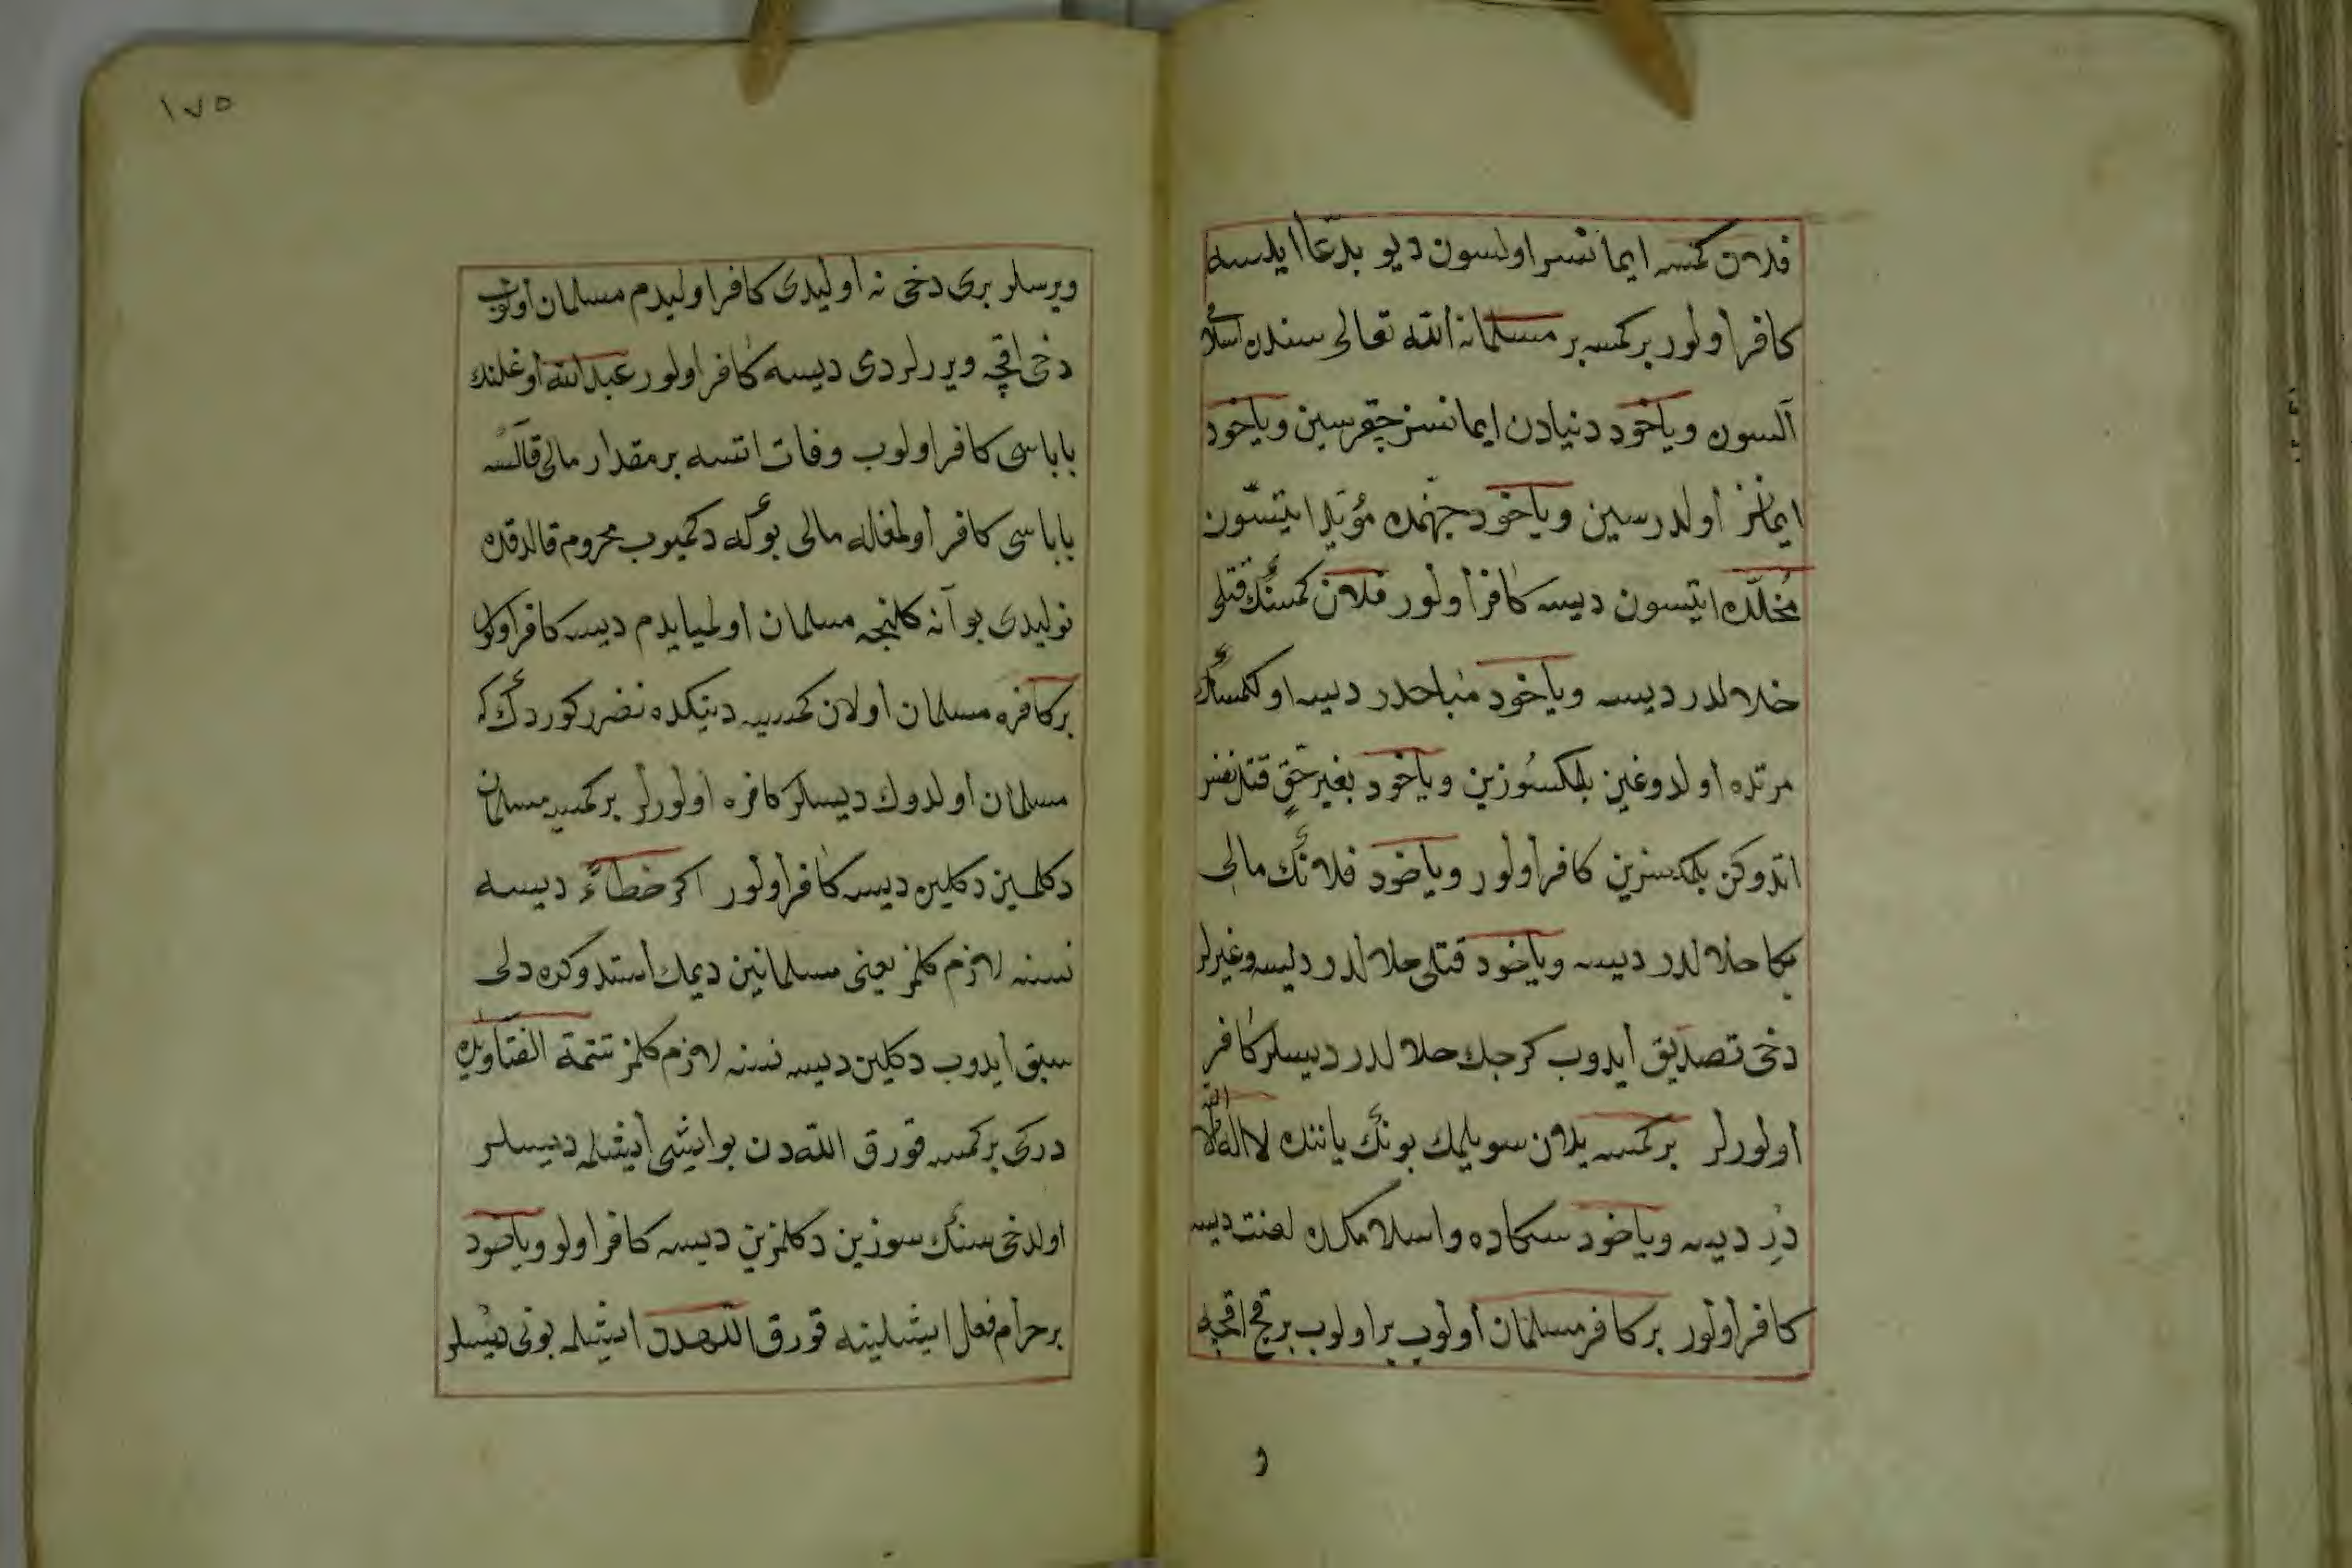 فلان كمسه ايمانسز اولسون ديو بدعا ايلسه
كافر اولور بر كمسه بر مسلمانه الله تعالى سندن اسلامى
آلسون وياخود دنيادن ايمانسز چقرسين وياخود
ايمانسز اولدرسين وياخود جهنمده مؤبد ايتسون
مخلده ايتسون ديسه كافر اولور فلان كمسنك قتلى
حلالدر ديسه وياخود مباحدر ديسه اول كمسنك
مرتده اولدوغين بلمكسوزين وياخود بغير حق قتل نفس
اتدوكن بلمكسزين كافر اولور وياخود فلانك مالى
بكا حلالدر ديسه وياخود قتلى حلالدر ديسه وغيرلر
دخى تصديق ايدوب كرجك حلالدر ديسلر كافر
اولورلر بر كمسه يلان سويلمك بونك ياننده لا اله الا الله
در ديسه وياخود سكاده واسلامكده لعنت ديسه
كافر اولور بر كافر مسلمان اولوب بر اولوب بر قچ اقچه
و
١٧٥
ويرسلر برى دخى نه اوليدى كافر اوليدم مسلمان اولوب
دخى اقچه ويرلردى ديسه كافر اولور عبد الله اوغلنك
باباسى كافر اولوب وفات اتسه بر مقدار مالى قالسه
باباسى كافر اولمغاله مالى بوكه دكميوب محروم قالدقده
نوليدى بو آنه كلنجه مسلمان اولميايدم ديسه كافر اولور
بر كافره مسلمان اولان كمسيه ديتكده نضرر كوردك كه
مسلمان اولدوك ديسلر كافره اولورلر بر كمسيه مسلمان
دكلمسين دكلين ديسه كافر اولور اكر خطاء ديسه
نسنه لازم كلمز يعنى مسلمانين ديمك استدوكده دلى
سبق ايدوب دكلين ديسه نسنه لازم كلمز تتمة الفتاويده
دركى بر كمسه قورق اللهدن بو ايشى ايشلمه ديسلر
اولدخى سنك سوزين دكلمزين ديسه كافر اولو وياخود
بر حرام فعل ايشلينه قورق اللهدن ايشلمه بونى ديسلر